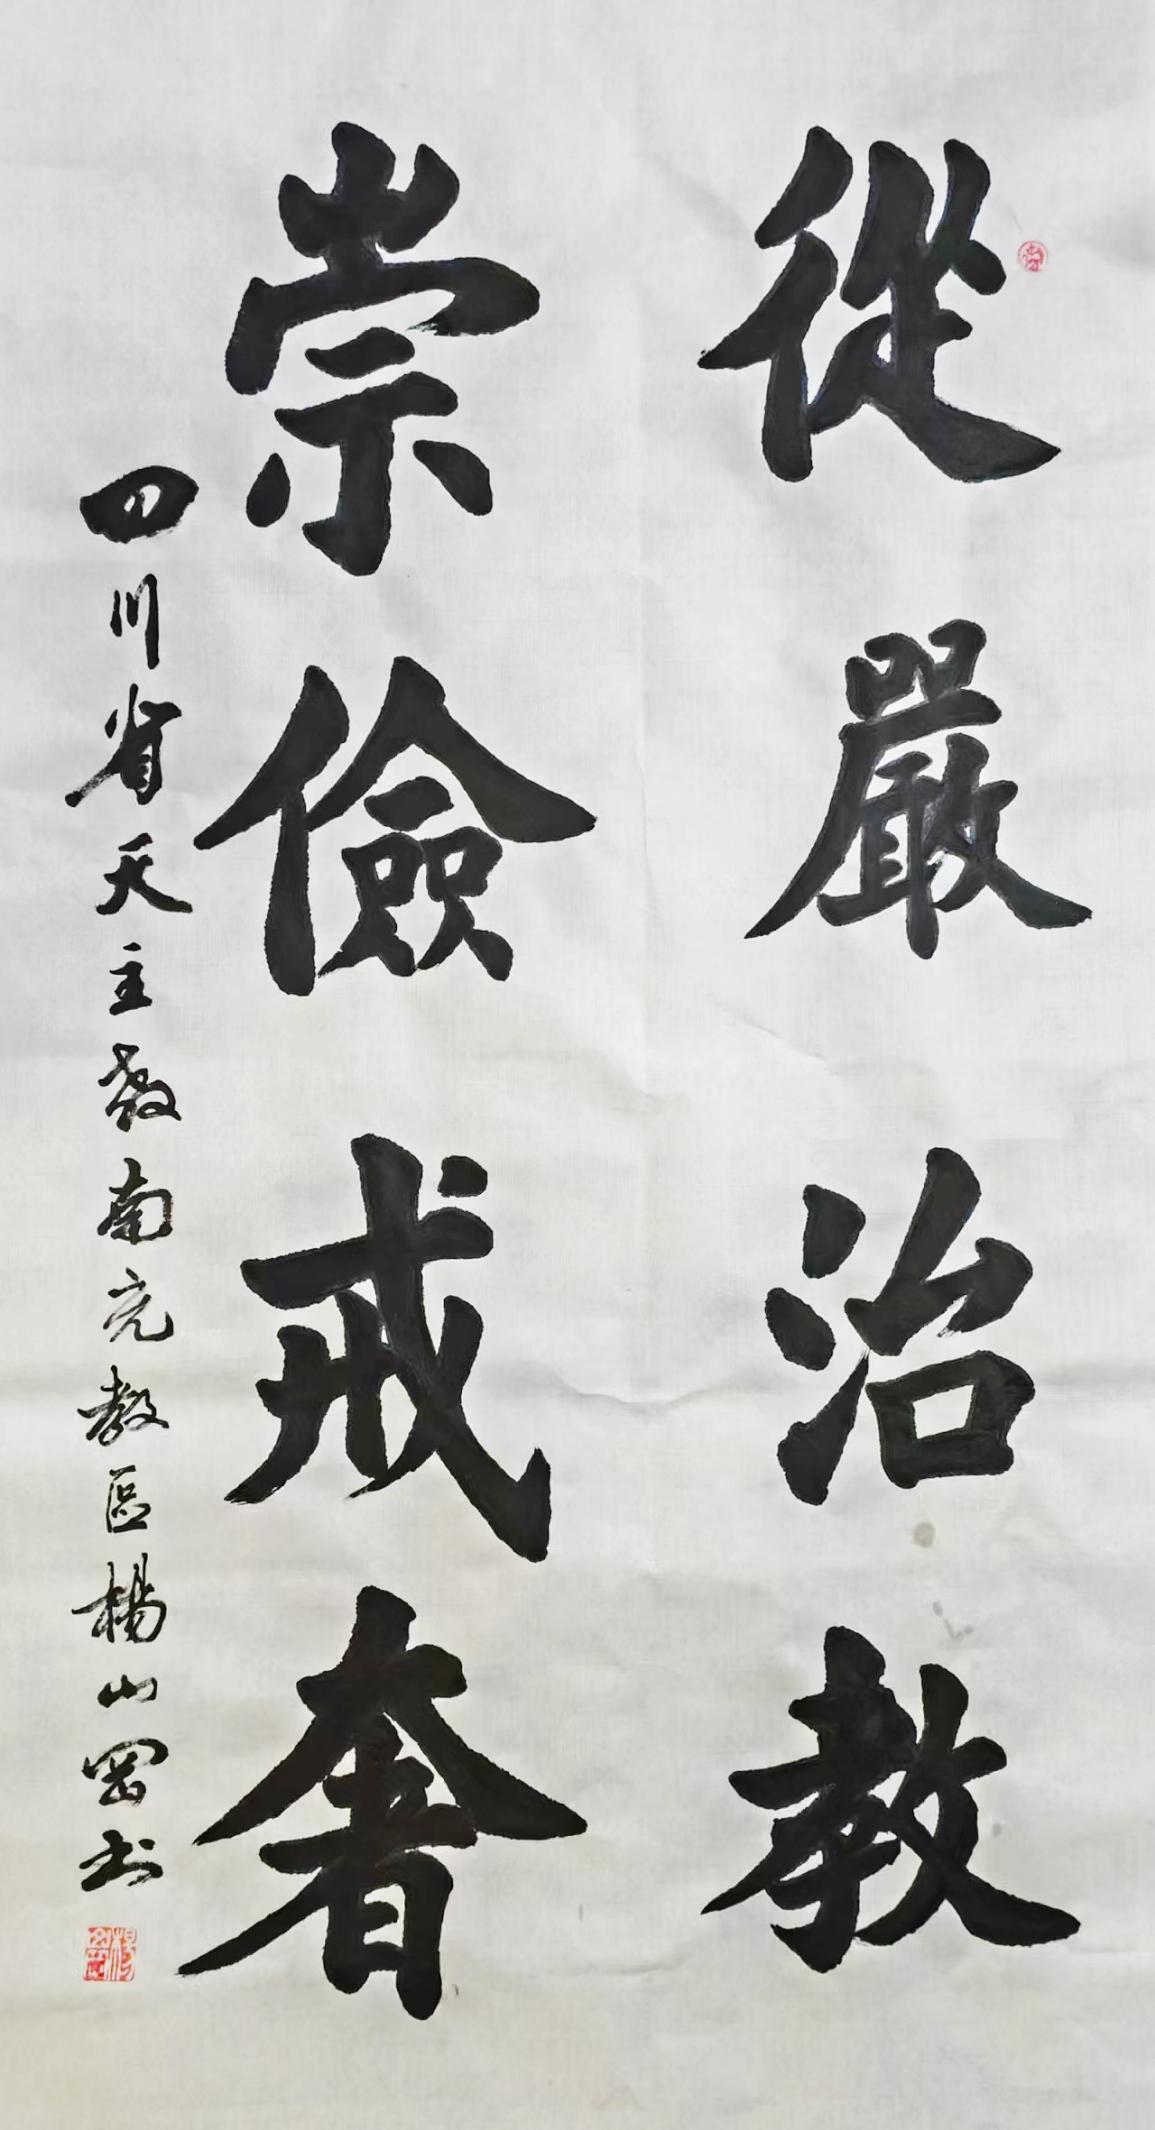 從嚴治教
崇儉戒奢
四川省天主教南充教區楊山岡书